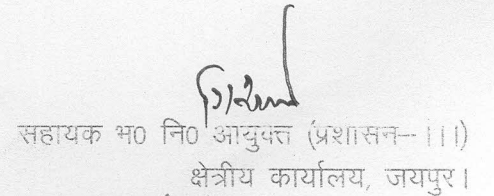 सहायक भ0 नि0 आयुक्त (प्रशासन-।।।)
क्षेत्रीय कार्यालय, जयपुर।